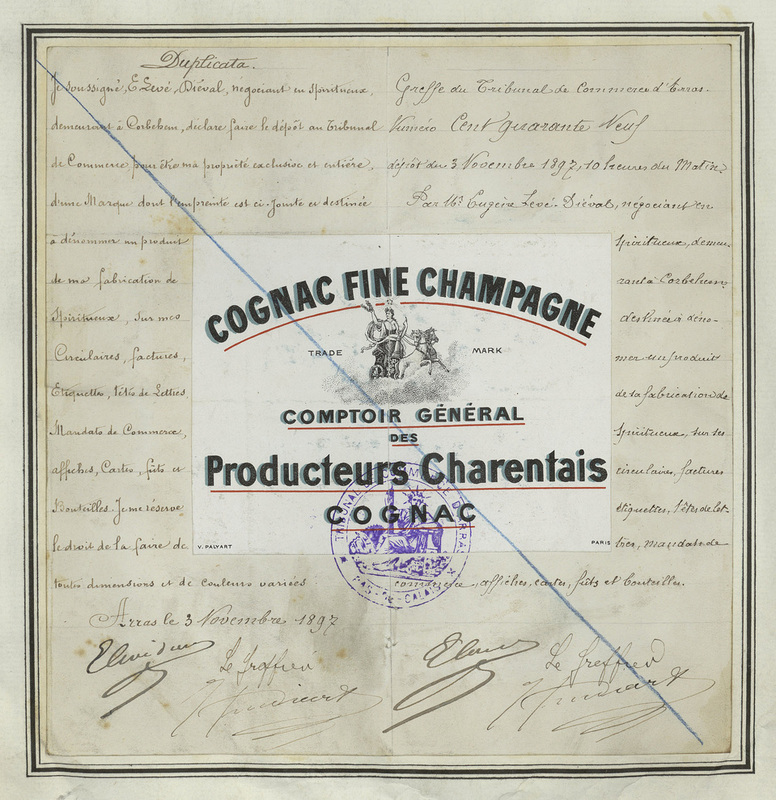 Duplicata.
Je soussigné, E. Levé, Diéval, négociant en Spiritueux,
demeurant à Corbehem, déclare faire le dépôt au Tribunal
de Commerce, pour être ma propriété exclusive et entière,
d'une Marque dont l'empreinte est ci-jointe et destinée
à dénommer un produit
de ma fabrication de
Spiritueux, sur mes
Circulaires, factures,
Etiquettes, têtes de Lettres,
Mandats de Commerce,
affiches, Cartes, fûts et
Bouteilles. Je me réserve
le droit de la faire de
toutes dimensions et de couleurs variées
Arras le 3 Novembre 1897
Le Greffier
Greffe du Tribunal de Commerce d'Arras.
Numéro Cent quarante Neuf
dépôt du 3 Novembre 1897, 10 heures du Matin
Par Mr Eugène Levé-Diéval, négociant en
Spiritueux, demeu-
rant à Corbehem
destinée à déno-
mer un produit
de sa fabrication de
Spiritueux, sur ses
circulaires, factures
étiquettes, têtes de let-
tres, mandats de
commerce, affiches, cartes, fûts et bouteilles.
Le Greffier
COGNAC FINE CHAMPAGNE
TRADE MARK
COMPTOIR GÉNÉRAL
DES
Producteurs Charentais
COGNAC
V. PALYART PARIS
TRIBUNAL DE COMMERCE D'ARRAS
PAS-DE-CALAIS